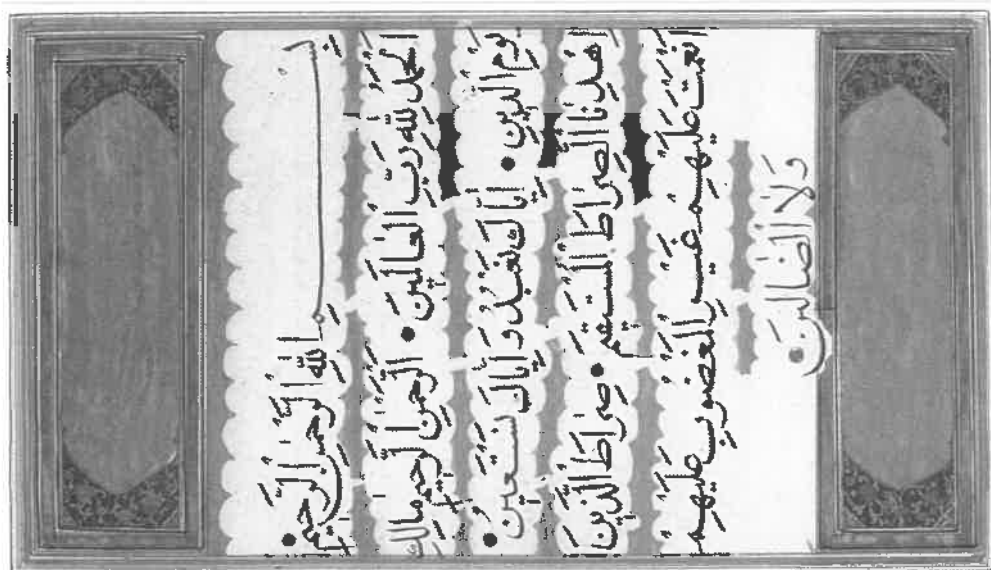 بِسْمِ اللهِ الرَّحْمٰنِ الرَّحِيمِ •
اَلْحَمْدُ لِلّٰهِ رَبِّ الْعَالَمِينَ • اَلرَّحْمٰنِ الرَّحِيمِ مَالِكِ
يَوْمِ الدِّينِ • اِيَّاكَ نَعْبُدُ وَاِيَّاكَ نَسْتَعِينُ •
اِهْدِنَا الصِّرَاطَ الْمُسْتَقِيمَ • صِرَاطَ الَّذِينَ
اَنْعَمْتَ عَلَيْهِمْ غَيْرِ الْمَغْضُوبِ عَلَيْهِمْ
وَلَا الضَّالِّينَ •